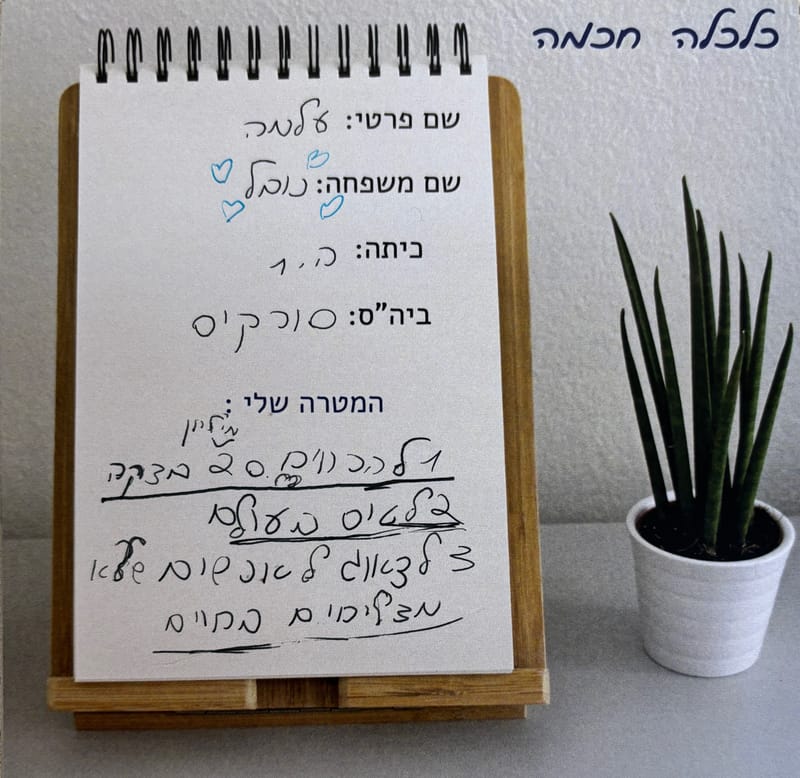 כלכלה חכמה
שם פרטי: עלמה
שם משפחה: נובל
כיתה: ה.1
ביה"ס: סורקיס
המטרה שלי:
מיליון
1 להרוויח 20 מצקה
2 לטיס בעולם
3 לדאוג לאנשים שלא
מצליחים בחיים